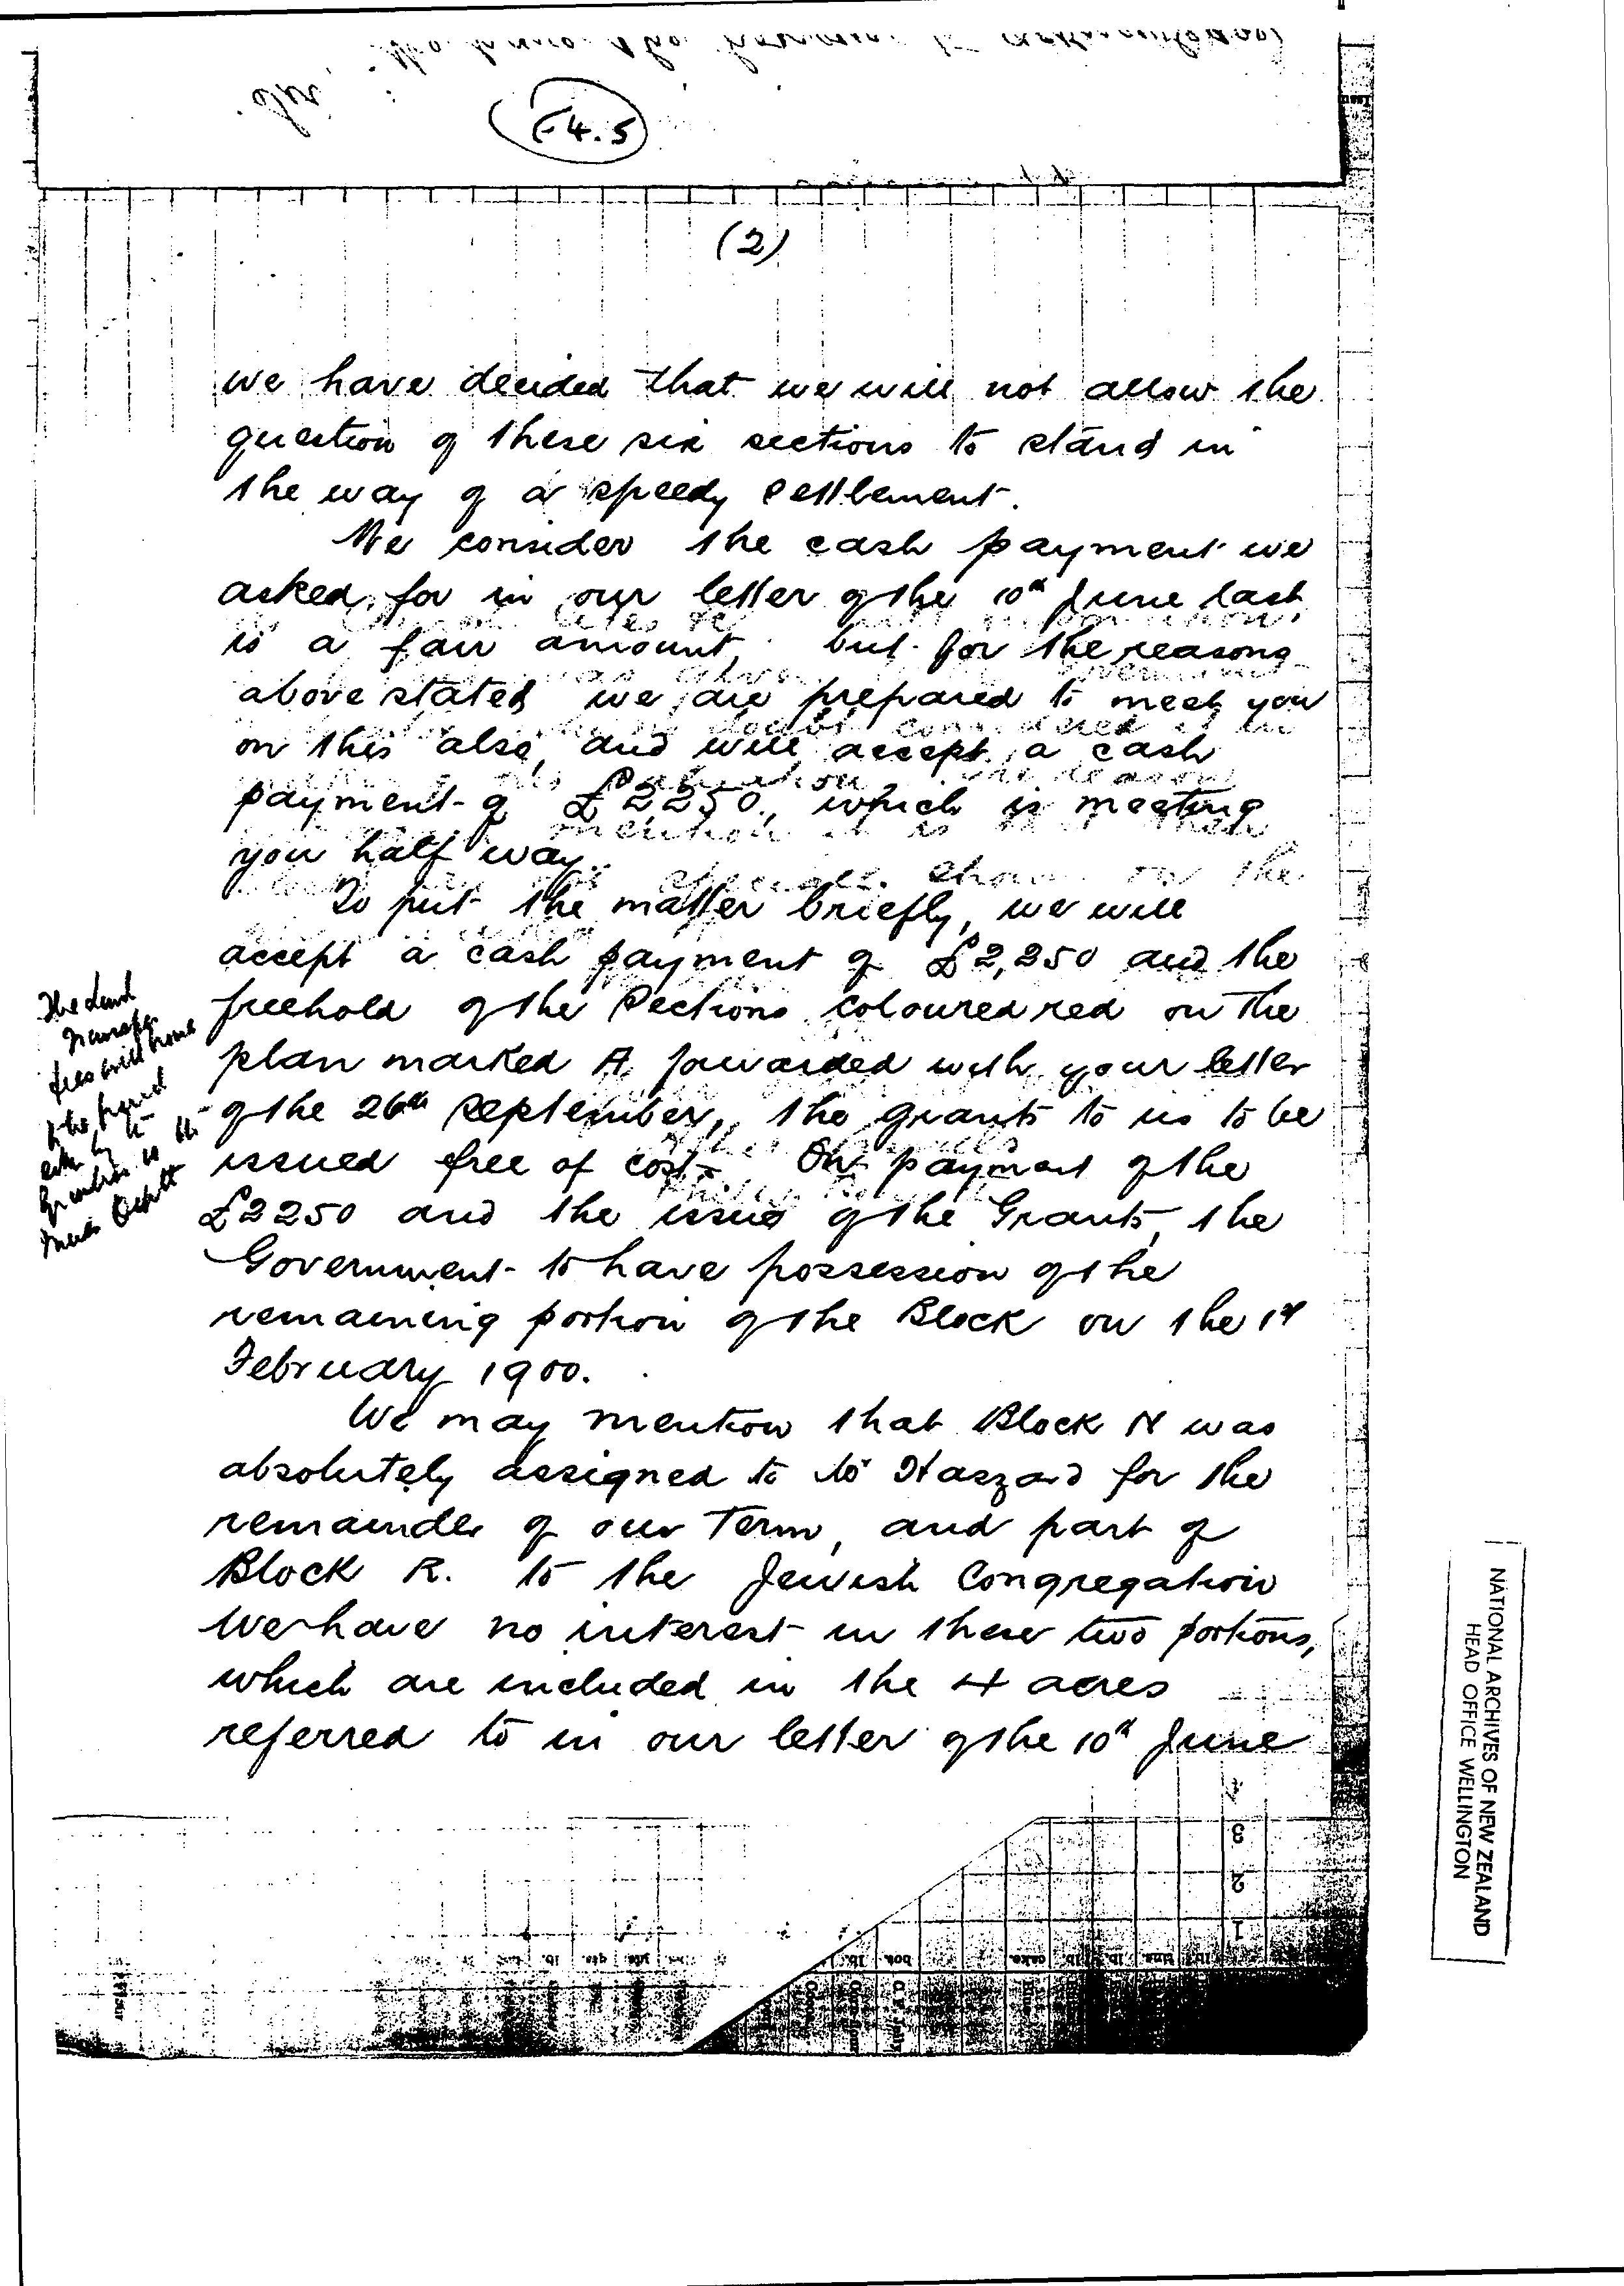 F4.5
(2)
we have decided that we will not allow the
question of these six sections to stand in
the way of a speedy settlement.
We consider the cash payment we
asked for in our letter of the 10th June last
is a fair amount, but for the reasons
above stated we are prepared to meet you
on this also, and will accept a cash
payment of £2250, which is meeting
you half way.
To put the matter briefly, we will
accept a cash payment of £2,250 and the
freehold of the Sections coloured red on the
plan marked A forwarded with your letter
of the 26th September, the grants to us to be
issued free of cost. On payment of the
£2250 and the issue of the Grants, the
Government to have possession of the
remaining portion of the Block on the 1st
February 1900.
We may mention that Block N was
absolutely assigned to Haszard for the
remainder of our Term, and part of
Block R. to the Jewish Congregation
We have no interest in these two portions,
which are included in the 4 acres
referred to in our letter of the 10th June
The Land
Transfer
fees will have
to be paid
by
Dept
NATIONAL ARCHIVES OF NEW ZEALAND
HEAD OFFICE WELLINGTON